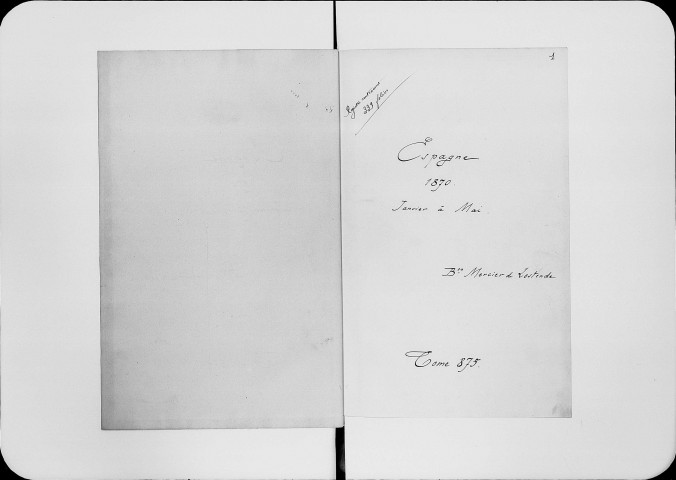 1
Registre contenant
339 folios
Espagne
1870
Janvier à Mai.
Bon Mercier de Lostende
Tome 875.